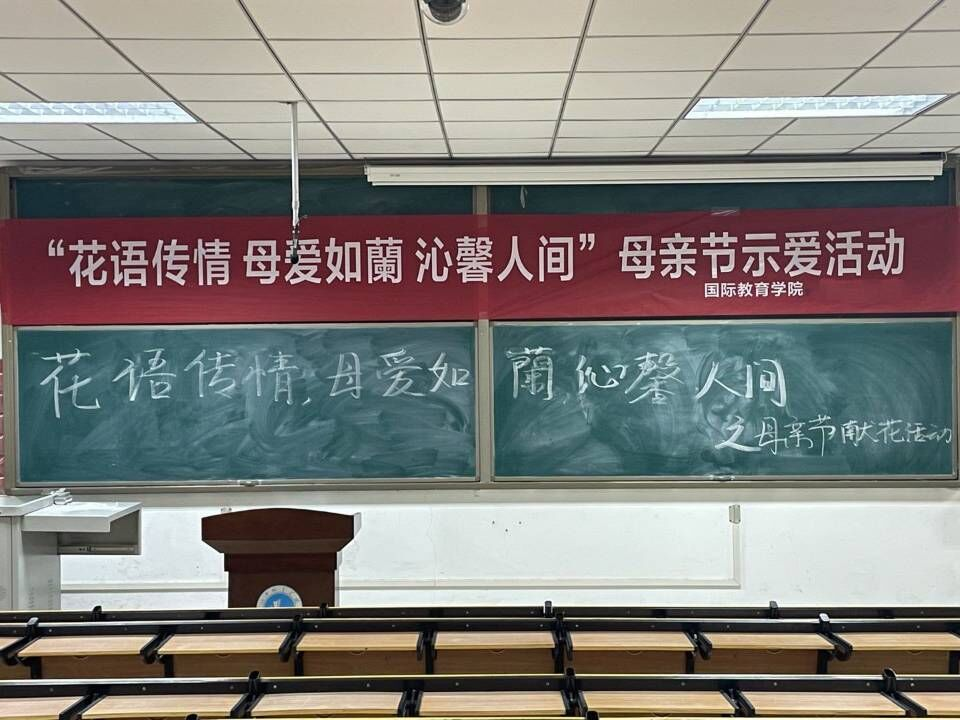 “花语传情 母爱如蘭 沁馨人间”母亲节示爱活动
国际教育学院
花语传情,母爱如蘭,沁馨人间
之母亲节献花活动